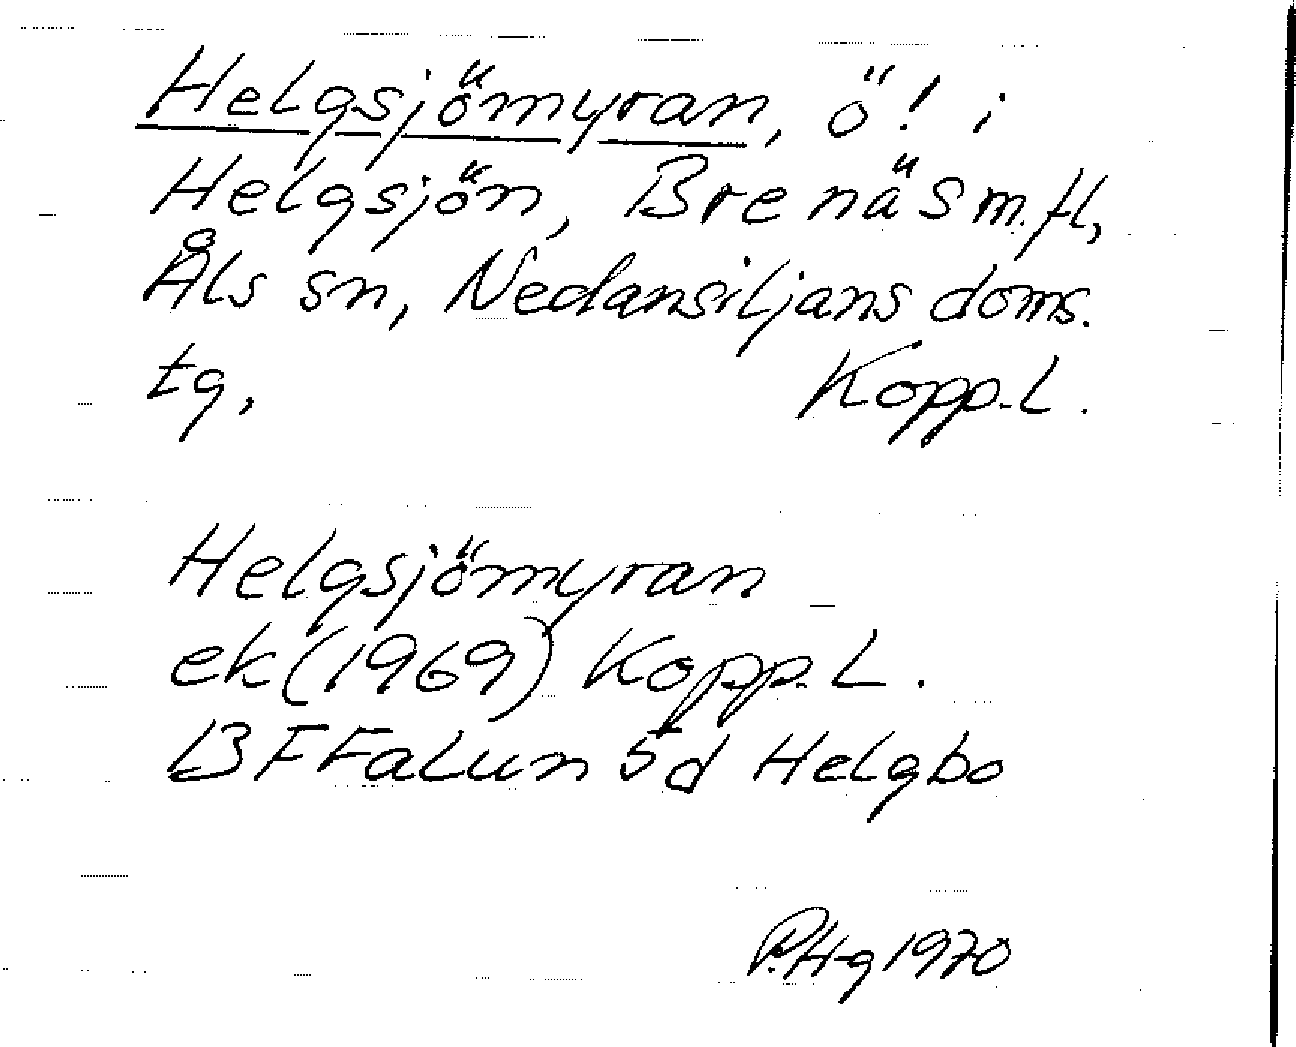 Helgsjömyran, ö! i
Helgsjön, Brenäs m.fl,
Åls sn, Nedansiljans doms.
tg, Kopp.L.
Helgsjömyran
ek (1969) Kopp.L.
BF Falun 5d Helgbo
P.Hg 1970